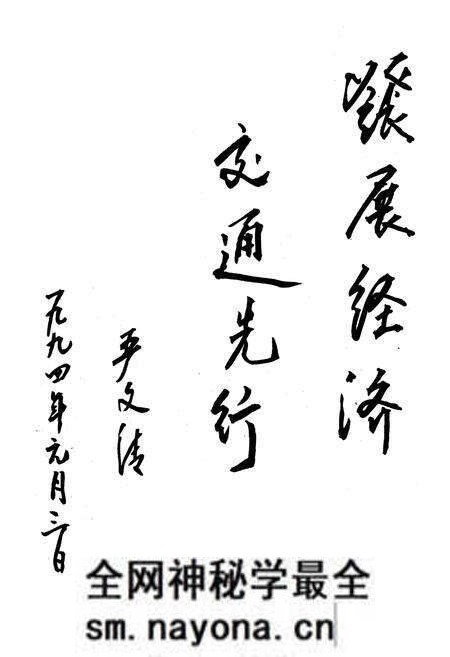 發展经济
交通先行
严文清
一九九四年元月三日
全网神秘学最全
sm.nayona.cn